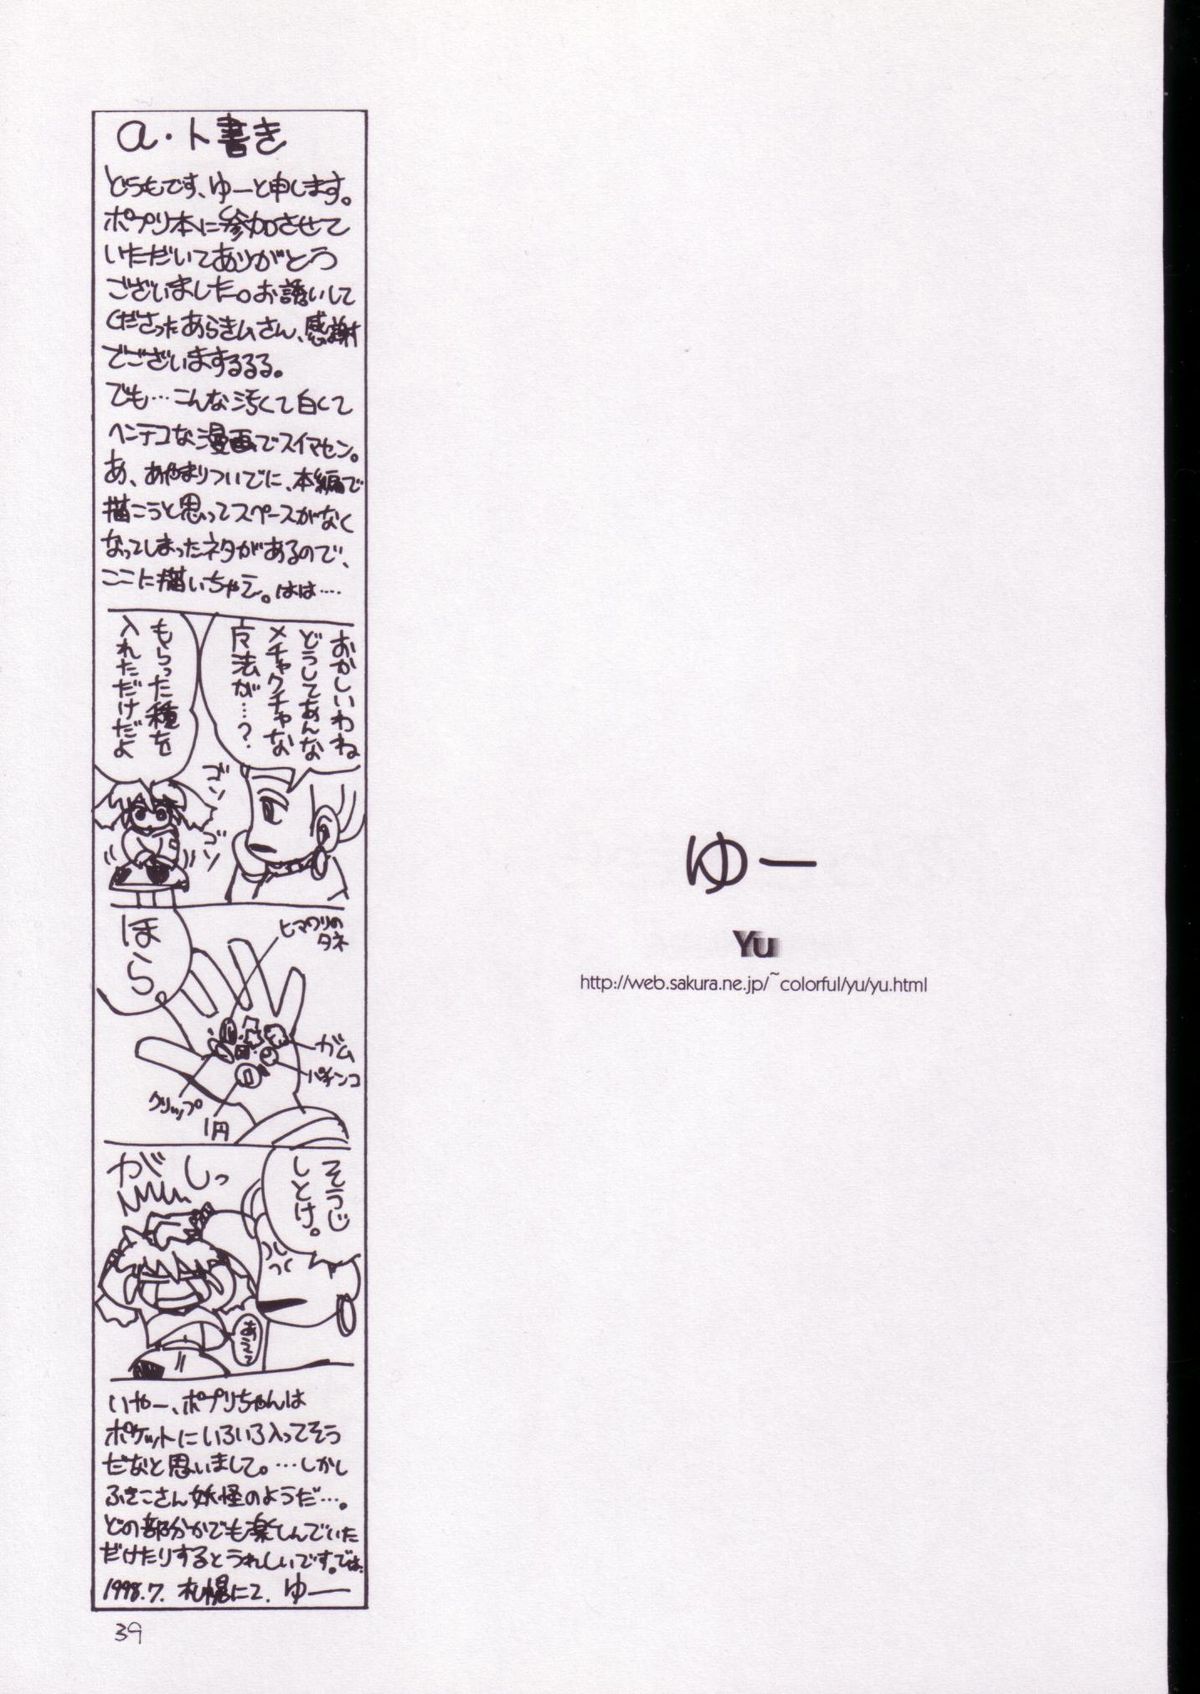 a・ト書き
どうもです、ゆーと申します。
ポプリ本に参加させて
いただいてありがとう
ございました。お誘いして
くださったあらきムさん、感謝
でございまするるる。
でも…こんな汚くて白くて
ヘンテコな漫画でスイマセン。
あ、あやまりついでに、本編で
描こうと思ってスペースがなく
なってしまったネタがあるので、
ここに描いちゃえ。はは……
おかしいわね
どうしてあんな
メチャクチャな
反法が…?
もらった種を
入れただけだよ
ゴソ
ゴソ
ほら。
ヒマワリの
タネ
ガム
パチンコ
クリップ
1円
そうじ
しとけ。
がしっ
つく
つく
あえて
いやー、ポプリちゃんは
ポケットにいろいろ入ってそう
だなと思いまして。…しかし
ふきこさん妖怪のようだ…。
どの部分かでも楽しんでいた
だけたりするとうれしいです。では、
1998.7. 札幌にて. ゆー
39
ゆー
Yu
http://web.sakura.ne.jp/~colorful/yu/yu.html